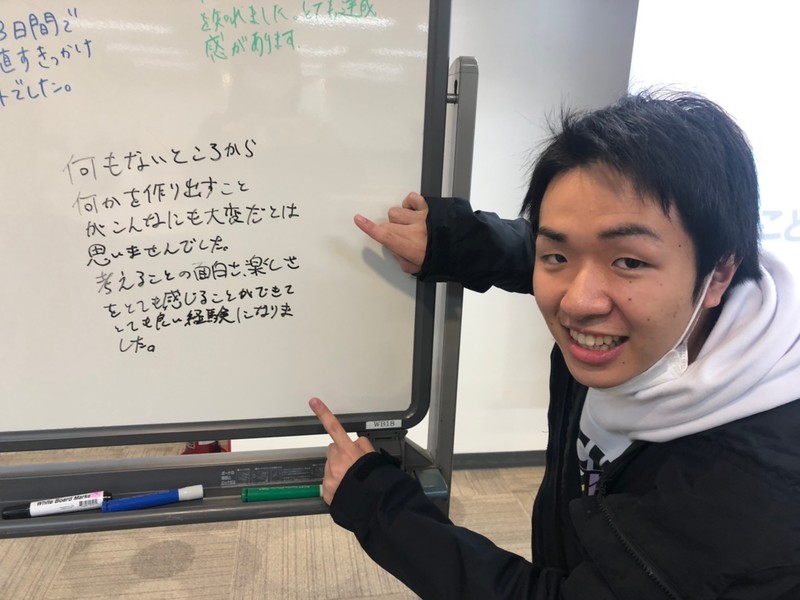 3日間で
直すきっかけ
トでした。
を知れました。とても達成
感があります。
何もないところから
何かを作り出すこと
がこんなにも大変だとは
思いませんでした。
考えることの面白さ、楽しさ
をとても感じることができて
とても良い経験になりま
した。
こと
WB18
White Board Marker